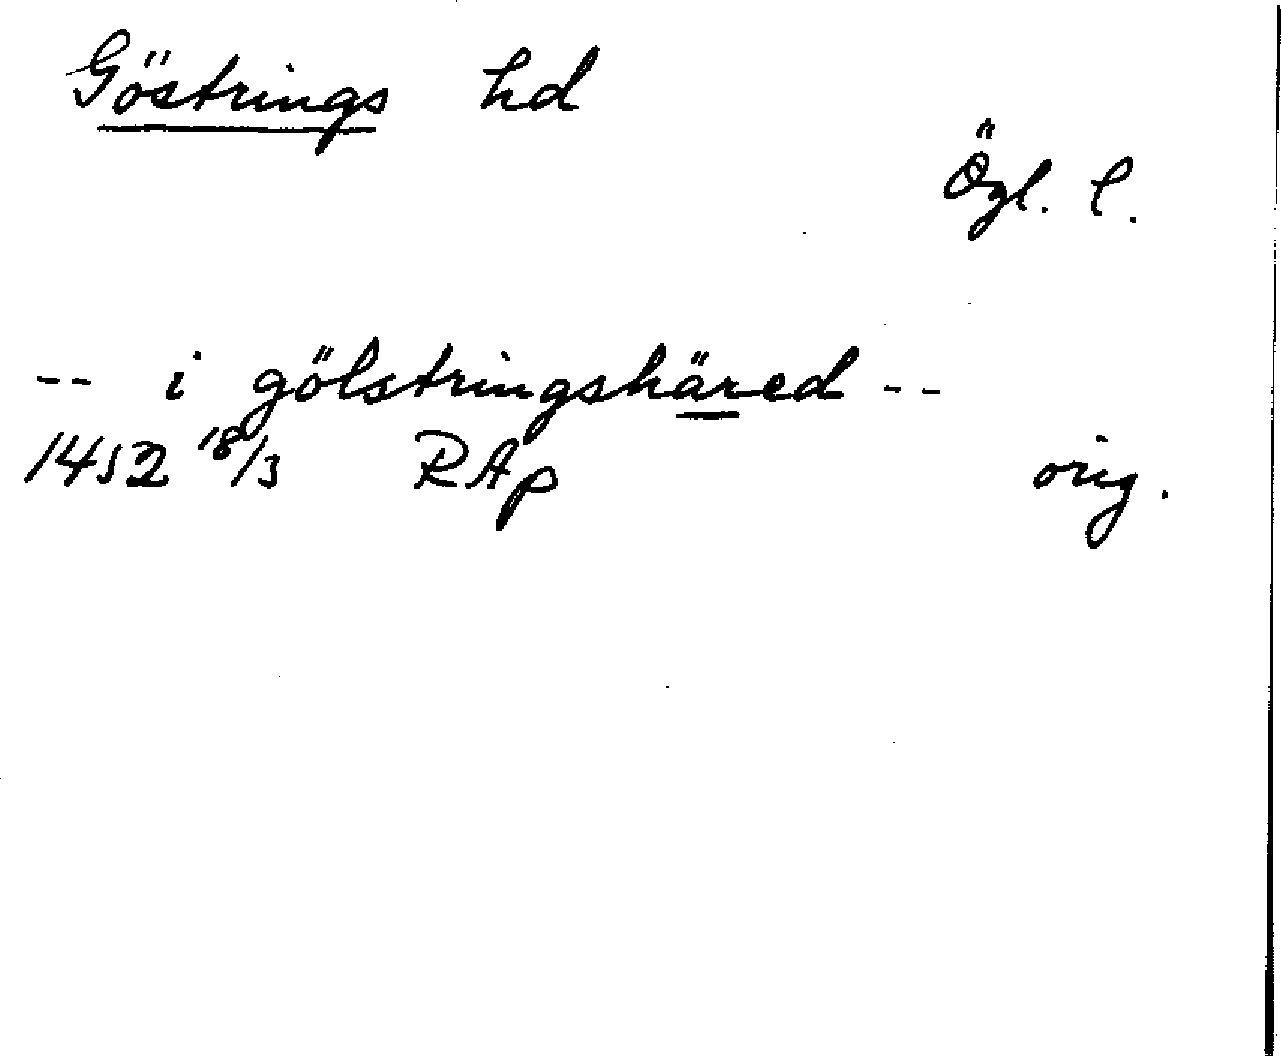 Göstrings hd
Ögl. l.
-- i gölstringshäred --
1452 18/3 RAp orig.